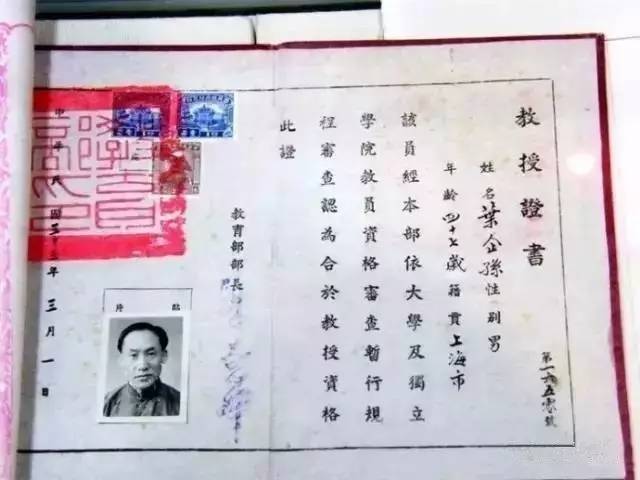 教授證書
姓名葉企孫性別男
年齡四十七歲籍貫上海市
第一六五零號
該員經本部依大學及獨立
學院教員資格審查暫行規
程審查認為合於教授資格
此證
教育部部長
中華民國三十三年三月一日